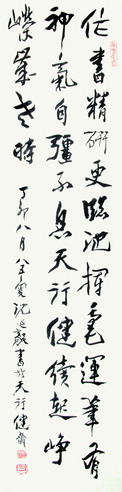 作書精研更臨池揮毫運筆有
神氣自彊不息天行健續起崢
嶸萬老時
丁卯八月八十叟沈延毅書於天行健齋